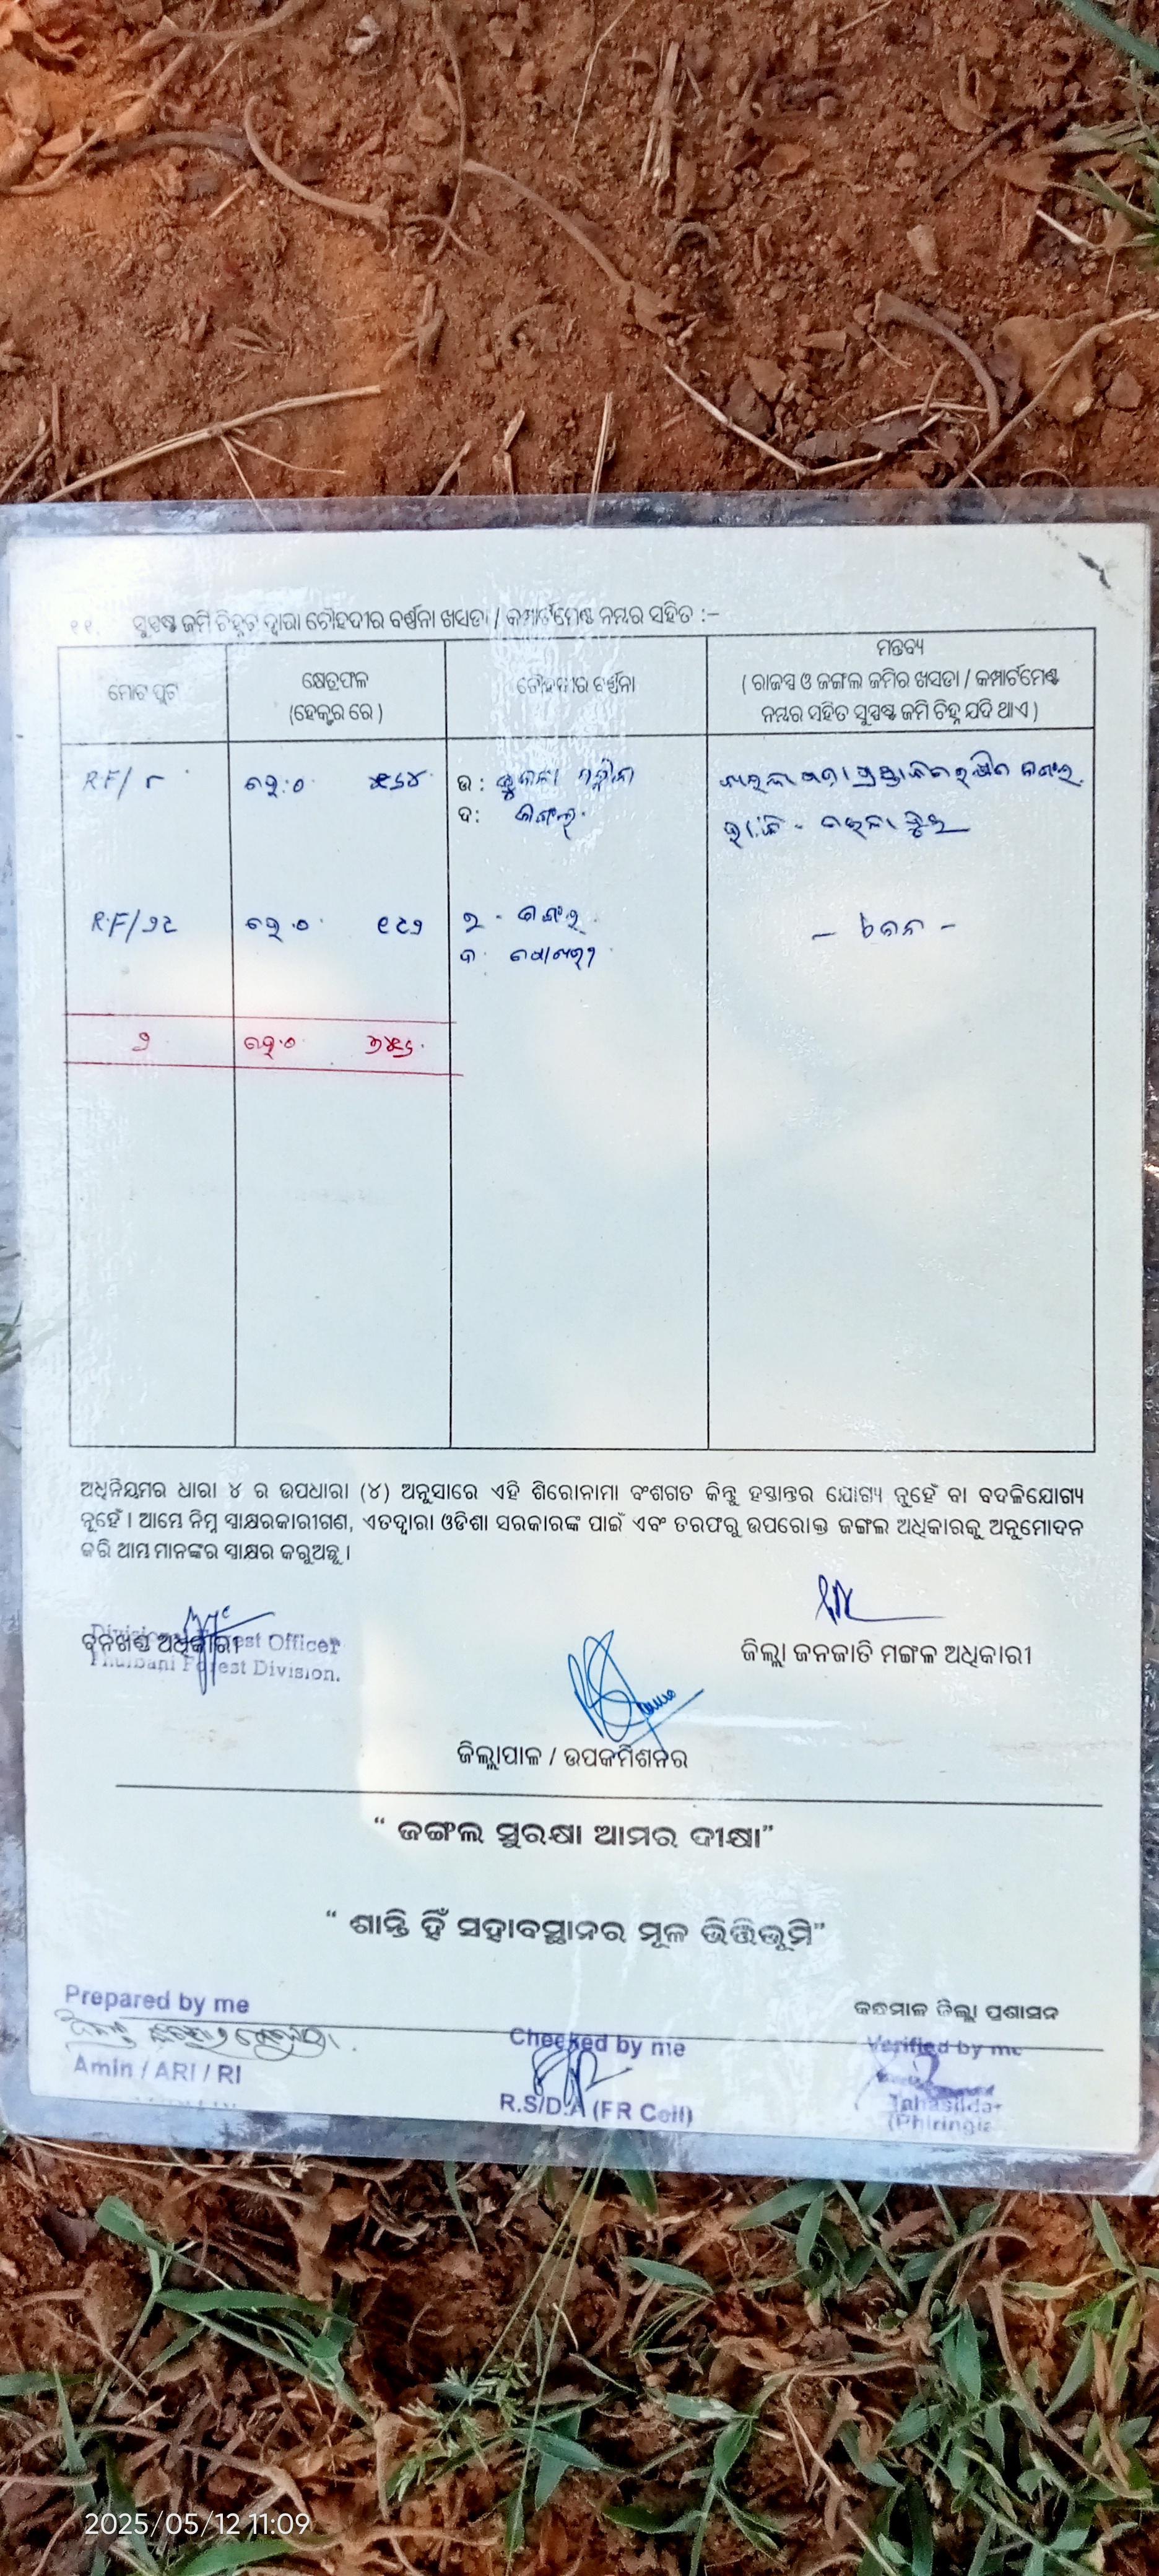 ୧୧. ସୁସ୍ପଷ୍ଟ ଜମି ଚିହ୍ନଟ ଦ୍ୱାରା ଚୌହଦୀର ବର୍ଣ୍ଣନା ଖସଡା / କମ୍ପାର୍ଟମେଣ୍ଟ ନମ୍ବର ସହିତ :-
ମୋଟ ପ୍ଲଟ
କ୍ଷେତ୍ରଫଳ
(ହେକ୍ଟର ରେ )
ଚୌହଦୀର ବର୍ଣ୍ଣନା
ମନ୍ତବ୍ୟ
( ରାଜସ୍ୱ ଓ ଜଙ୍ଗଲ ଜମିର ଖସଡା / କମ୍ପାର୍ଟମେଣ୍ଟ
ନମ୍ବର ସହିତ ସୁସ୍ପଷ୍ଟ ଜମି ଚିହ୍ନ ଯଦି ଥାଏ )
RF/୮ ହେ:୦ ଉ :
ଦ: ଜଙ୍ଗଲ
R.F/୨୯ ହେ.୦ ୧୯୨ ଉ - ଜଙ୍ଗଲ
ଦ
୨ ହେ.୦
ଅଧିନିୟମର ଧାରା ୪ ର ଉପଧାରା (୪) ଅନୁସାରେ ଏହି ଶିରୋନାମା ବଂଶଗତ କିନ୍ତୁ ହସ୍ତାନ୍ତର ଯୋଗ୍ୟ ନୁହେଁ ବା ବଦଳିଯୋଗ୍ୟ
ନୁହେଁ । ଆମ୍ଭେ ନିମ୍ନ ସ୍ୱାକ୍ଷରକାରୀଗଣ, ଏତଦ୍ୱାରା ଓଡିଶା ସରକାରଙ୍କ ପାଇଁ ଏବଂ ତରଫରୁ ଉପରୋକ୍ତ ଜଙ୍ଗଲ ଅଧିକାରକୁ ଅନୁମୋଦନ
କରି ଆମ୍ଭ ମାନଙ୍କର ସ୍ୱାକ୍ଷର କରୁଅଛୁ ।
Divisional Forest Officer
ବନଖଣ୍ଡ ଅଧିକାରୀ
Phulbani Forest Division.
ଜିଲ୍ଲା ଜନଜାତି ମଙ୍ଗଳ ଅଧିକାରୀ
ଜିଲ୍ଲାପାଳ / ଉପକମିଶନର
“ ଜଙ୍ଗଲ ସୁରକ୍ଷା ଆମର ଦୀକ୍ଷା”
“ ଶାନ୍ତି ହିଁ ସହାବସ୍ଥାନର ମୂଳ ଭିତ୍ତିଭୂମି”
Prepared by me
Amin / ARI / RI
Checked by me
R.S/D.A (FR Cell)
କନ୍ଧମାଳ ଜିଲ୍ଲା ପ୍ରଶାସନ
Verified by me
Tahasildar
(Phiringia
2025/05/12 11:09